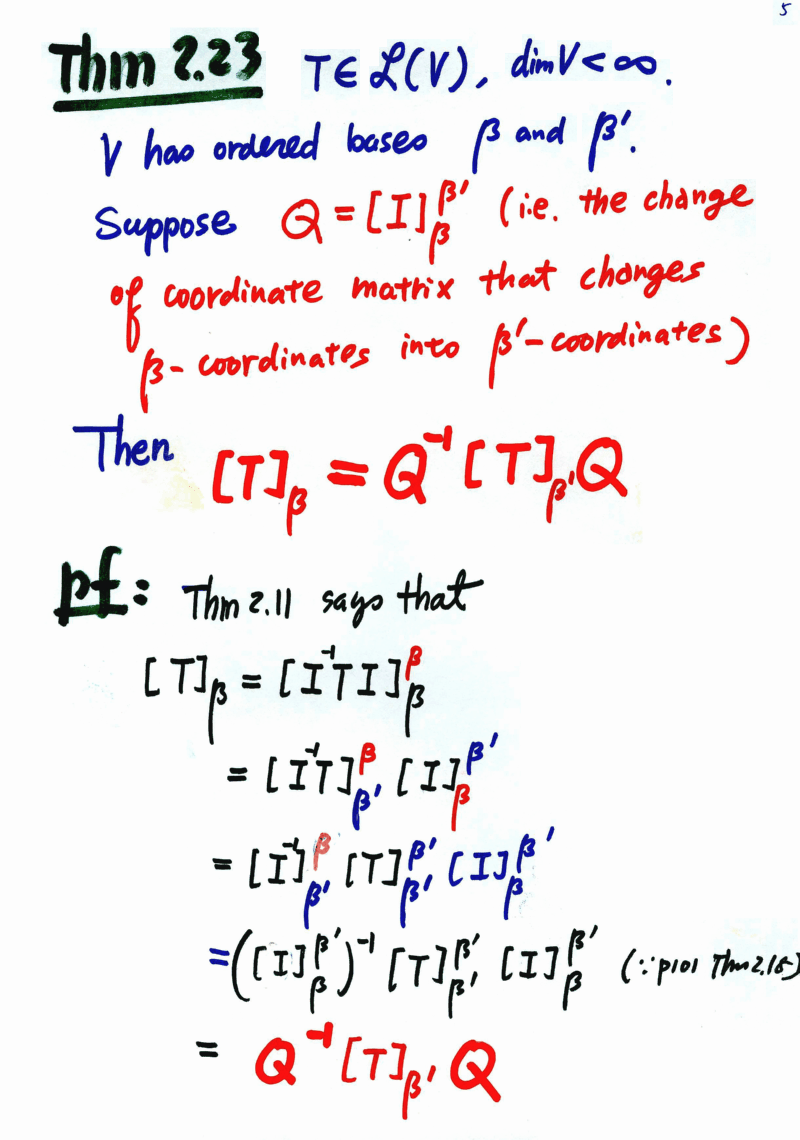 5
Thm 2.23 T∈ ℒ(V), dimV<∞.
V has ordered bases β and β′.
Suppose Q = [I]_β^β′ (i.e. the change
of coordinate matrix that changes
β- coordinates into β′-coordinates)
Then [T]_β = Q⁻¹[T]_β′Q
pf: Thm 2.11 says that
[T]_β = [I⁻¹TI]_β^β
= [I⁻¹T]_β′^β [I]_β^β′
= [I⁻¹]_β′^β [T]_β′^β′ [I]_β^β′
=([I]_β^β′)⁻¹ [T]_β′^β′ [I]_β^β′ (∵p101 Thm2.18)
= Q⁻¹[T]_β′ Q